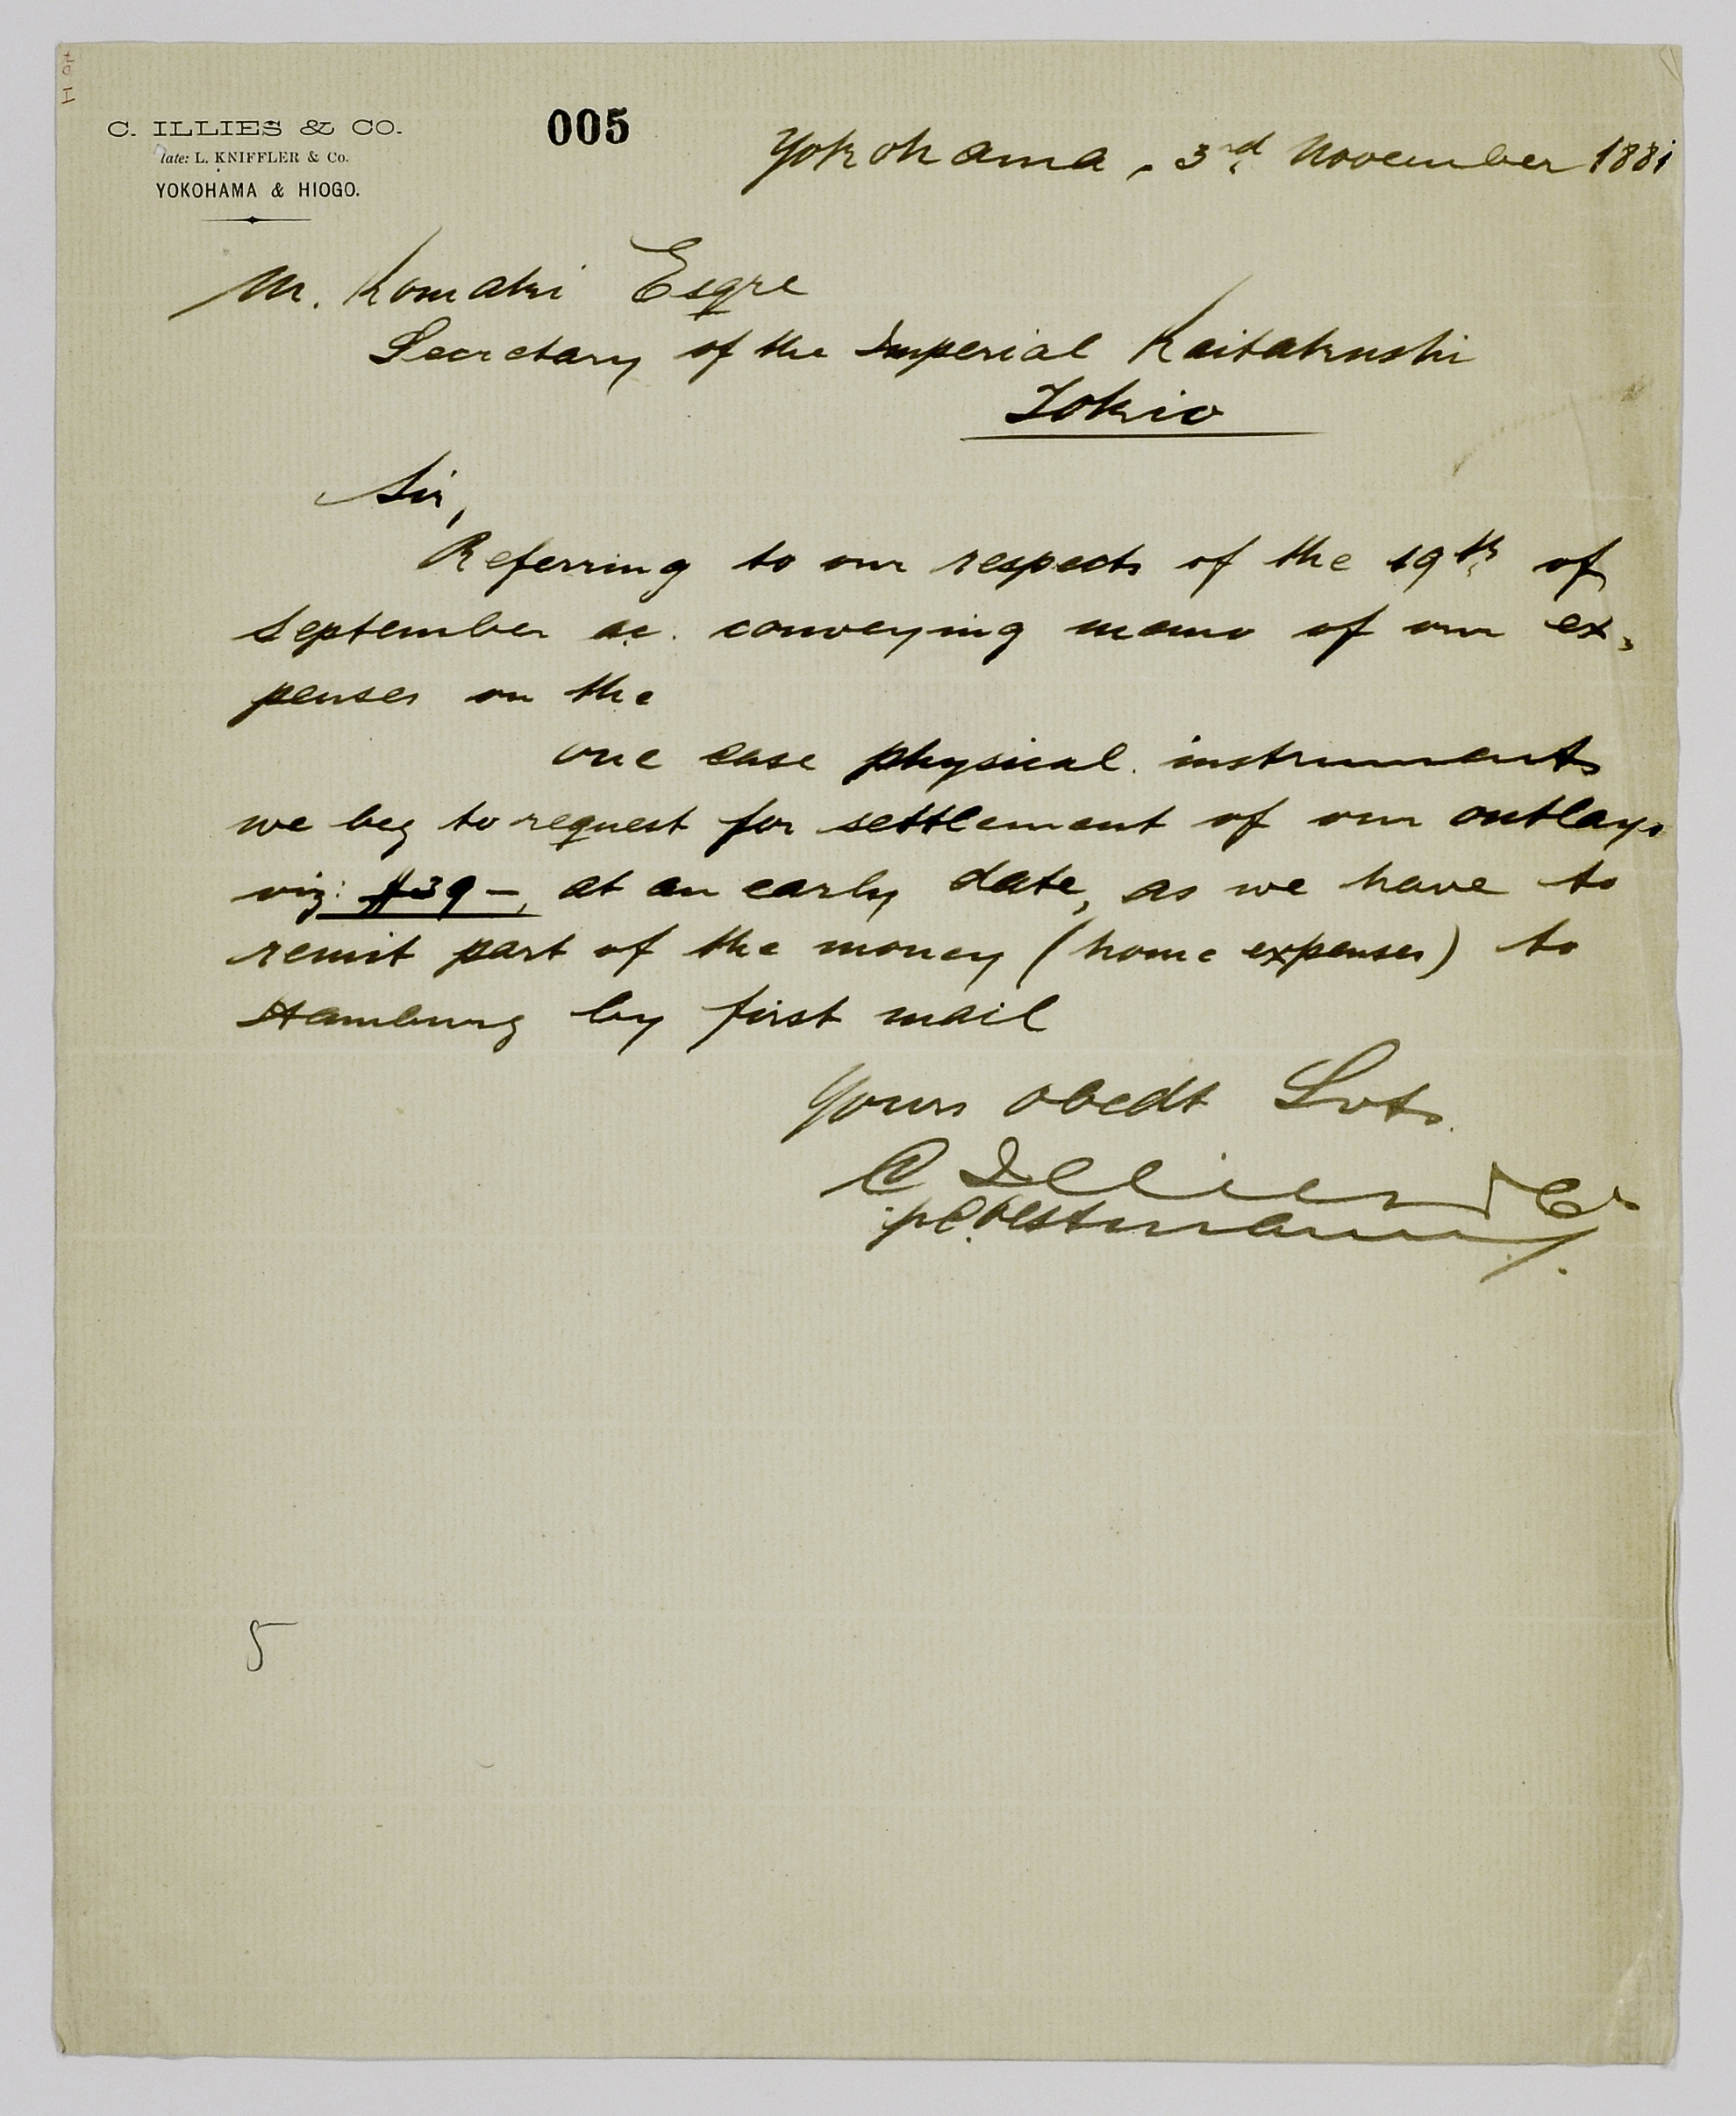 C. ILLIES & CO.
late: L. KNIFFLER & Co.
YOKOHAMA & HIOGO.
005
Yokohama, 3rd November 1881
M. Komaki Esqre
Secretary of the Imperial Kaitakushi
Tokio
Sir,
Referring to our respects of the 19th of
September ac. conveying memo of our ex-
penses on the
one case physical instruments
we beg to request for settlement of our outlays
viz: $39—, at an early date, as we have to
remit part of the money (home expenses) to
Hamburg by first mail
Yours obedt Svts.
C Illies & Co
5